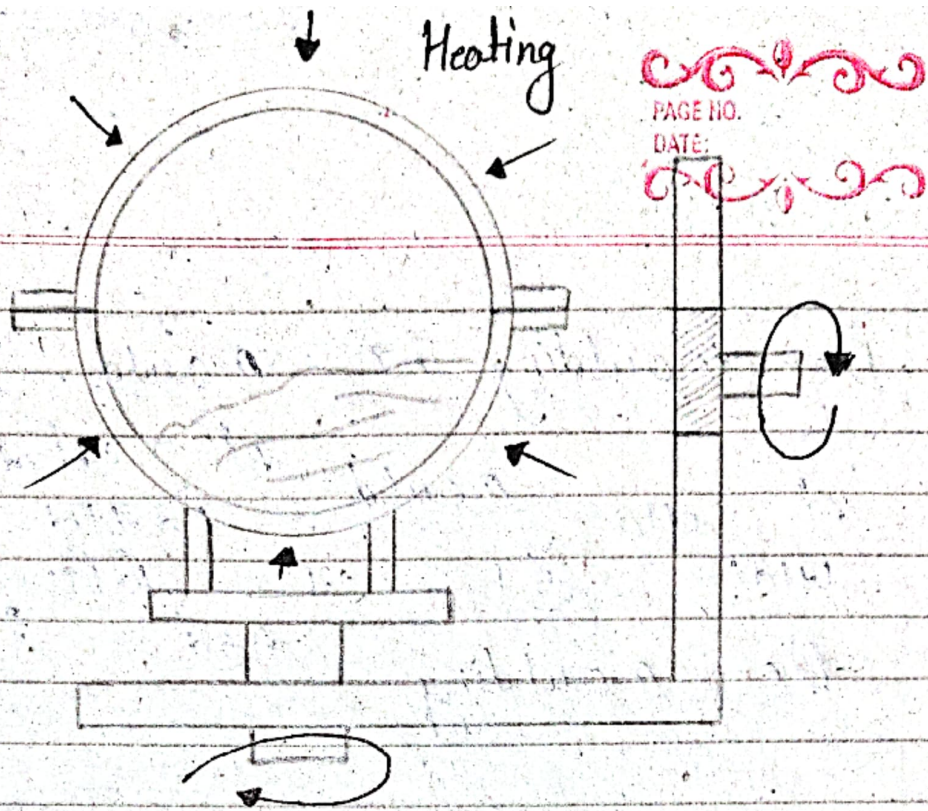 Heating
PAGE NO.
DATE: